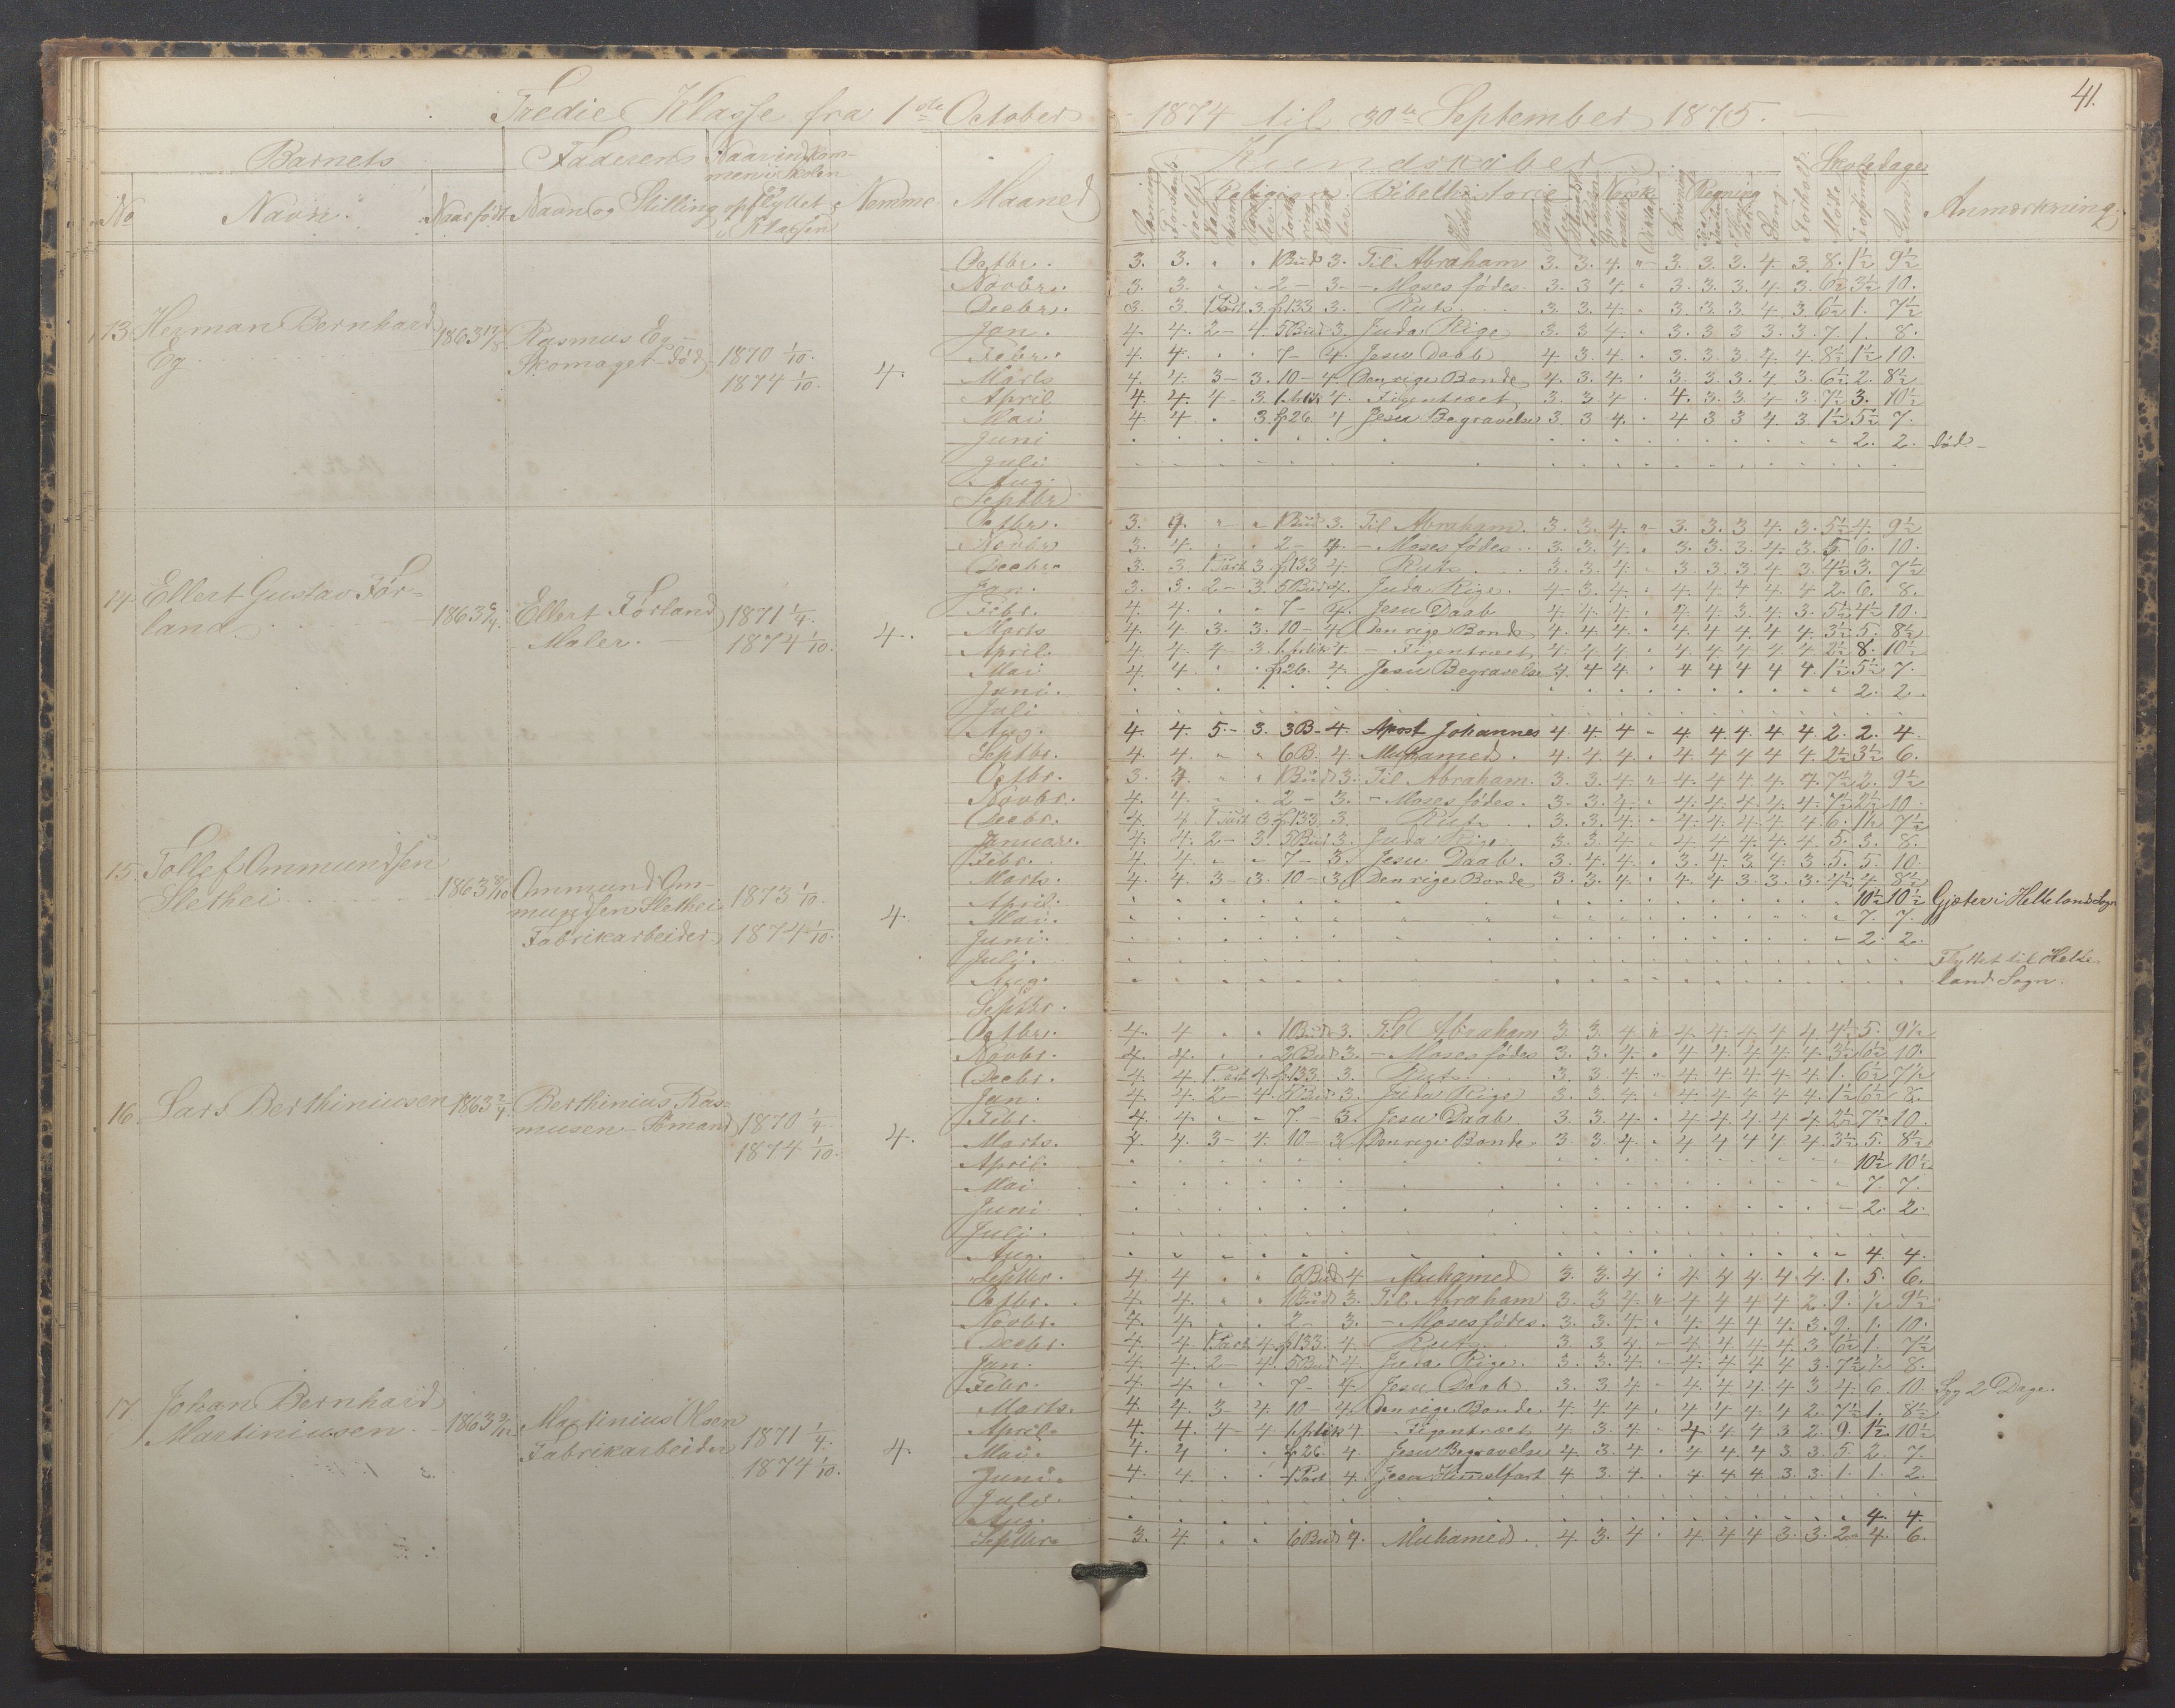 41.
Tredie Klasse fra 1ste October 1874 til 30te September 1875.
Barnets Faderens Naar indkom-
men i Skolen
No Navn. Naar født Navn og Stilling opflyttet i Klassen Nemme Maaned
Kundskaber Skoledage
Religion Bibelhistorie Norsk Regning
Sang Forhold Mødte Sum Anmærkning
13 Herman Bernhard
Eg 1863 Rasmus Eg
Skomager død 1870 1/10.
1874 1/10. 4.
Octbr. 3. 3. " " 1 Bud 3. Til Abraham 3. 3. 4. " 3. 3. 3. 4. 3. 8. 1½ 9½
Novbr. 3. 3. " " 2 - 3. - Moses fødes. 3. 3. 4. " 3. 3. 3. 4. 3. 6½ 3½ 10.
Decbr. 3. 3. 1 Part 3. fr 133 3. Ruts 3. 3. 4. " 3. 3. 3. 4. 3. 6½ 1. 7½
Jan. 4. 4. 2 - 4. 5 Bud 3. Juda Rige 3. 3. 4. " 3. 3. 3. 3. 3. 7. 1. 8.
Febr. 4. 4. " " 7 - 4. Jesu Daab 4. 3. 4. " 3. 3. 3. 4. 4. 8½ 1½ 10.
Marts 4. 4. 3 - 3. 10 - 4. Den rige Bonde 4. 3. 4. " 3. 3. 3. 4. 3. 6½ 2. 8½
April 4. 4. 4 - 3. 4. Figentræet 3. 3. 4. " 4. 3. 3. 4. 3. 7½ 3. 10½
Mai 4. 4. " 3. fr 26 4 Jesu Begravelse 3. 3. 4. " 4 3 3 4. 3. 1½ 5½ 7.
Juni 2. 2. død -
Juli
Aug.
Septbr
14 Ellert Gustav Før-
land 1863 Ellert Førland
Maler. 1871 1/4.
1874 1/10. 4.
Octbr. 3. 4. " " 1 Bud 3. Til Abraham. 3. 3. 4. " 3. 3. 3. 4. 3. 5½ 4. 9½
Novbr 3. 4. " " 2 - 4. - Moses fødes 3. 3. 4. " 3. 3. 3. 4. 3. 5. 6. 10.
Decbr. 3. 3. 1 Part 3. fr 133 4. Ruts 3. 3. 4. " 3. 3. 3. 4. 3. 4½ 3. 7½
Jan. 3. 3. 2 - 3. 5 Bud 4. Juda Rige. 4. 3. 4. " 4. 4. 4. 4. 4. 2. 6. 8.
Febr. 4. 4. " " 7 - 4. Jesu Daab 4. 4. 4. " 4. 4. 3. 4. 3. 5½ 4½ 10.
Marts 4. 4. 3. 3. 10 - 4 Den rige Bonde 4. 4. 4. " 4. 4. 4. 4. 4. 3½ 5. 8½
April. 4. 4. 4 - 3. 4. - Figentræet 4. 4. 4. " 4. 4. 4. 4. 4. 2½ 8. 10½
Mai 4. 4. " " fr 26. 4. Jesu Begravelse 4. 4. 4. " 4 4 4 4 4. 1½ 5½ 7.
Juni. 2. 2.
Juli
Aug. 4. 4. 5. - 3. 3 B. - 4. Apost Johannes 4. 4. 4 - 4 4. 4. 4 4 2. 2. 4.
Septbr. 4. 4. " " 6 B. 4. Muhamed. 4. 4. 4. " 4. 4. 4. 4. 4. 2½ 3½ 6.
15. Tollef Ommundsen
Slethei 1863 Ommund Om-
mundsen Slethei
Fabrikarbeider 1873 1/10.
1874 1/10. 4.
Octbr. 3. 4. " " 1 Bud 3. Til Abraham. 3. 3. 4. " 4. 4. 4. 4. 4. 7½ 2. 9½
Novbr. 4. 4. " " 2 - 3. - Moses fødes. 3. 3. 4. " 4. 4. 4. 4. 4. 7½ 2½ 10.
Decbr. 4. 4. 1 Part 3. fr 133. 3. Ruts 3. 3. 4. " 4. 4. 4. 4. 4. 6. 1½ 7½
Januar. 4. 4. 2 - 3. 5 Bud 3. Juda Rige 3. 3. 4. " 4. 4. 4. 4. 4. 5. 3. 8.
Febr. 4. 4. " " 7 - 3. Jesu Daab. 3. 4. 4. " 3. 4. 3. 4. 3. 5. 5. 10.
Marts. 4. 4. 3 - 3. 10 - 3. Den rige Bonde 3. 3. 4. " 4. 4. 3. 3. 3. 4½ 4. 8½
April. 10½ 10½ Gjæter i Helleland Sogn
Mai. 7. 7.
Juni. 2. 2.
Juli. Flyttet til Helle-
Aug. land Sogn.
Septbr.
16. Lars Berthiniusen 1863 Berthinius Ras-
musen - Sømand 1870 1/4.
1874 1/10. 4.
Octbr. 4. 4 " " 1 Bud 3. Til Abraham 3. 3. 4. " 4. 4. 4. 4. 4. 4½ 5. 9½
Novbr. 4. 4. " " 2 Bud 3. - Moses fødes 3. 3. 4. " 4. 4. 4. 4. 4. 3½ 6½ 10.
Decbr. 4. 4. 1 Part 4. fr 133. 3. Ruts 3. 3. 4. " 4. 4. 4. 4. 4. 1. 6½ 7½
Jan. 4. 4. 2 - 4. 5 Bud 3. Juda Rige 3. 3. 4. " 4. 4. 4. 4. 4. 1½ 6½ 8.
Febr. 4. 4. " " 7 - 3. Jesu Daab 3. 3. 4. " 4. 4. 4. 4. 4. 2½ 7½ 10.
Marts. 4. 4. 3 - 4. 10 - 3. Den rige Bonde. 3. 3. 4. " 4 4 4 4. 4. 3½ 5. 8½
April. 10½ 10½
Mai 7. 7.
Juni 2. 2.
Juli.
Aug. 4 4.
Septbr. 4. 4 " " 6 Bud 4 - Muhamed 3. 3. 4 " 4. 4. 4. 4. 4. 1. 5. 6.
17 Johan Bernhard
Martiniusen. 1863 Martinius Olsen
Fabrikarbeider 1871 1/4.
1874 1/10. 4.
Octbr. 4. 4. " " 1 Bud 3. Til Abraham 3. 3. 4. " 4 4 4 4 2. 9. ½ 9½
Novbr. 4. 4. " " 2 - 3. - Moses fødes. 3. 3. 4. " 4. 4. 4. 4. 3. 9. 1. 10.
Decbr. 4. 4. 1 Part 4. fr 133. 4. Ruts 3. 3. 4. - 4. 4. 4. 4. 3. 6½ 1. 7½
Jan. 4. 4. 2 - 4. 5 Bud 4. Juda Rige. 3. 3. 4. - 4. 4. 4. 4. 3. 7½ ½ 8.
Febr. 4. 4. " " 7 - 4. Jesu Daab 3. 3. 4. - 4. 4. 4. 4. 3 4. 6. 10. Syg 2 Dage.
Marts. 4. 4. 3 - 4. 10 - 4. Den rige Bonde. 4. 4. 4. " 4. 4. 4. 4. 2. 7½ 1. 8½
April. 4. 4. 4 - 4 4 - Figentræet 4. 3. 4. " 4. 4. 4. 3. 2. 9. 1½ 10½
Mai. 4. 4. " " fr 26. 4. Jesu Begravelse 4. 3. 4. " 4. 4. 4. 3. 3. 5. 2. 7.
Juni. 4. 4. " " 1 Part 4. Jesu Himmelfart 4. 3. 4. " 4. 4. 4. 3. 3. 1. 1. 2.
Juli.
Aug. 4. 4.
Septbr. 3. 4. " " 6 Bud 4. Muhamed. 4. 3. 4. " 4. 4. 4. 3. 3. 2. 4. 6.